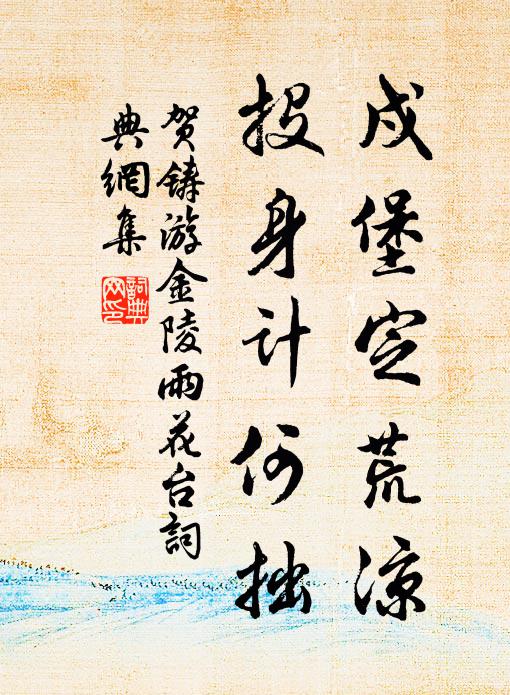 戍堡空荒凉
投身计何拙
贺铸游金陵雨花台詞
典網集
詞典
网印